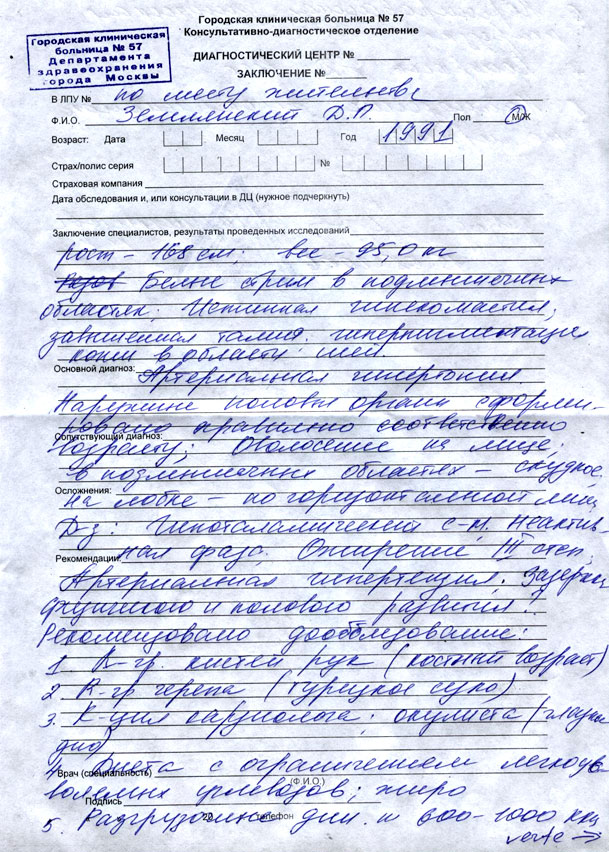 Городская клиническая больница № 57
Консультативно-диагностическое отделение
Городская клиническая
больница № 57
Департамента
здравоохранения
города Москвы
ДИАГНОСТИЧЕСКИЙ ЦЕНТР №
ЗАКЛЮЧЕНИЕ №
В ЛПУ № по месту жительства
Ф.И.О. Землянский Д.П. Пол М/Ж
Возраст: Дата Месяц Год 1991
Страх/полис серия №
Страховая компания
Дата обследования и, или консультации в ДЦ (нужное подчеркнуть)
Заключение специалистов, результаты проведенных исследований
рост - 168 см; вес - 95,0 кг
Белые стрии в подмышечных
областях; Истинная гинекомастия,
завышенная талия. гиперпигментация
кожи в области шеи.
Основной диагноз: Артериальная гипертония
Наружние половые органы сформи-
рованы правильно соответственно
Сопутствующий диагноз:
возрасту; Оволосение на лице,
в подмышечных областях - скудное.
Осложнения: на лобке - по горизонтальной линии
Д-з: Гипоталамический с-м. Неактив-
Рекомендации: ная фаза. Ожирение III степ.
Артериальная гипертензия. Задержка
физического и полового развития?
Рекомендовано дообследование:
1 R-гр. кистей рук (костный возраст)
2 R-гр черепа (турецкое седло).
3. К-ция кардиолога; окулиста (глазное
дно)
4. Диета с ограничением легкоус-
Врач (специальность) (Ф.И.О.)
вояемых углеводов; жиров
Подпись 20 телефон
5. Разгрузочные дни. и 600-1000 ккал
verte →